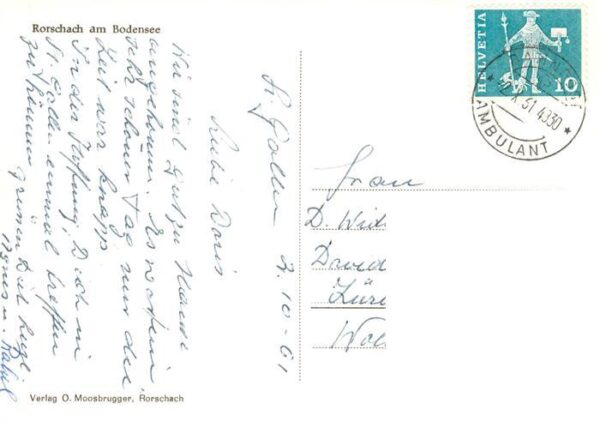 Rorschach am Bodensee
St. Gallen 2.10-61
Liebe Doris
Wir sind gut zu Hause
angekommen. Es war ein
sehr schöner Tag nur die
Zeit war knapp.
In der Hoffnung, Dich in
St. Gallen einmal treffen
zu können
grüssen Dich herzl.
Agnes u.
Verlag O. Moosbrugger, Rorschach
HELVETIA
10
X 61 4330
* AMBULANT *
Frau
D. Wid
David
Züri